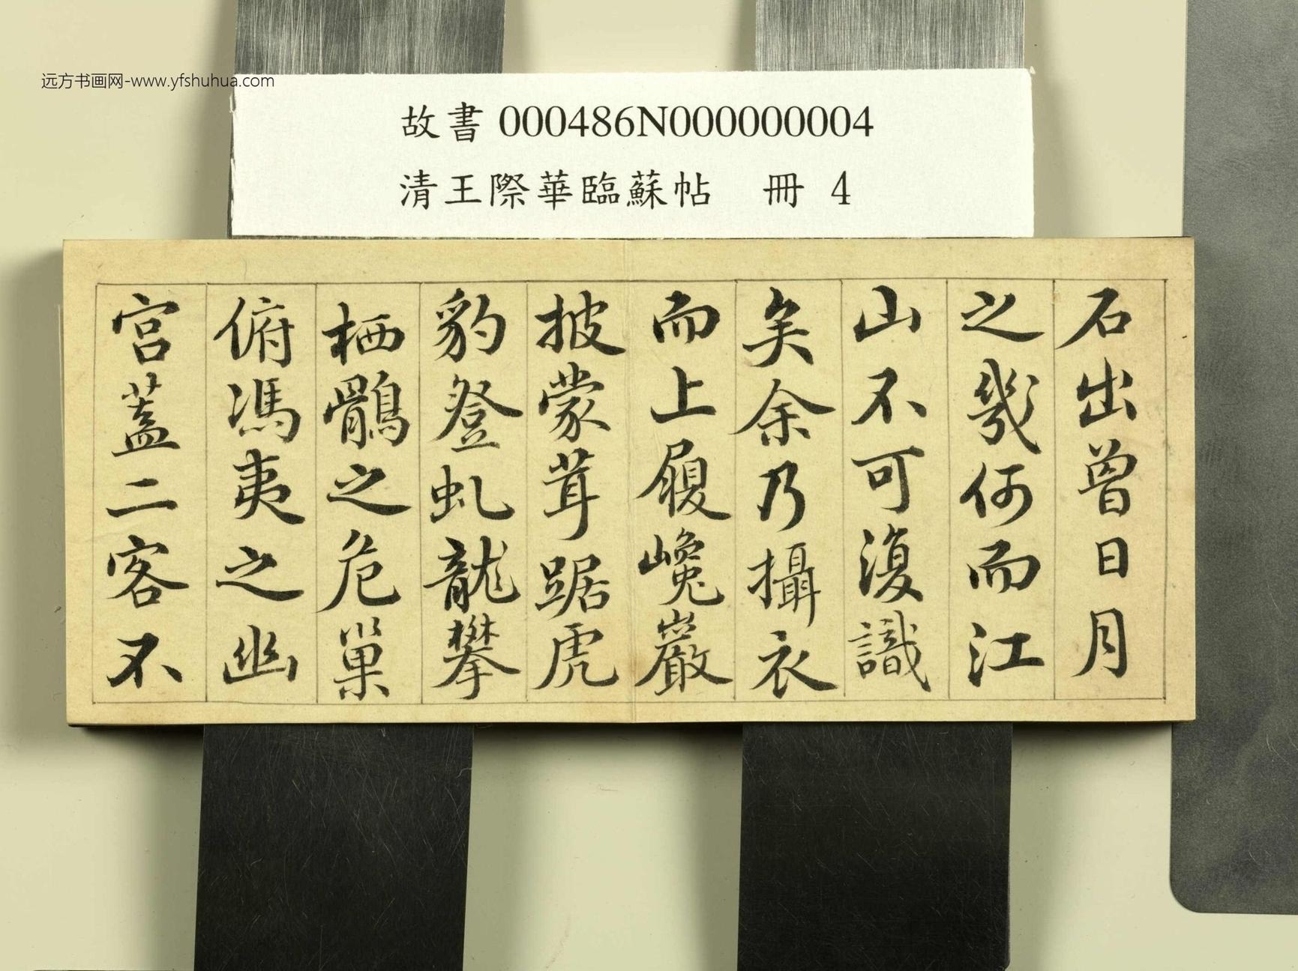 远方书画网-www.yfshuhua.com
故書000486N000000004
清王際華臨蘇帖 冊 4
石出曾日月
之幾何而江
山不可復識
矣余乃攝衣
而上履巉巖
披蒙茸踞虎
豹登虬龍攀
栖鶻之危巢
俯馮夷之幽
宮蓋二客不